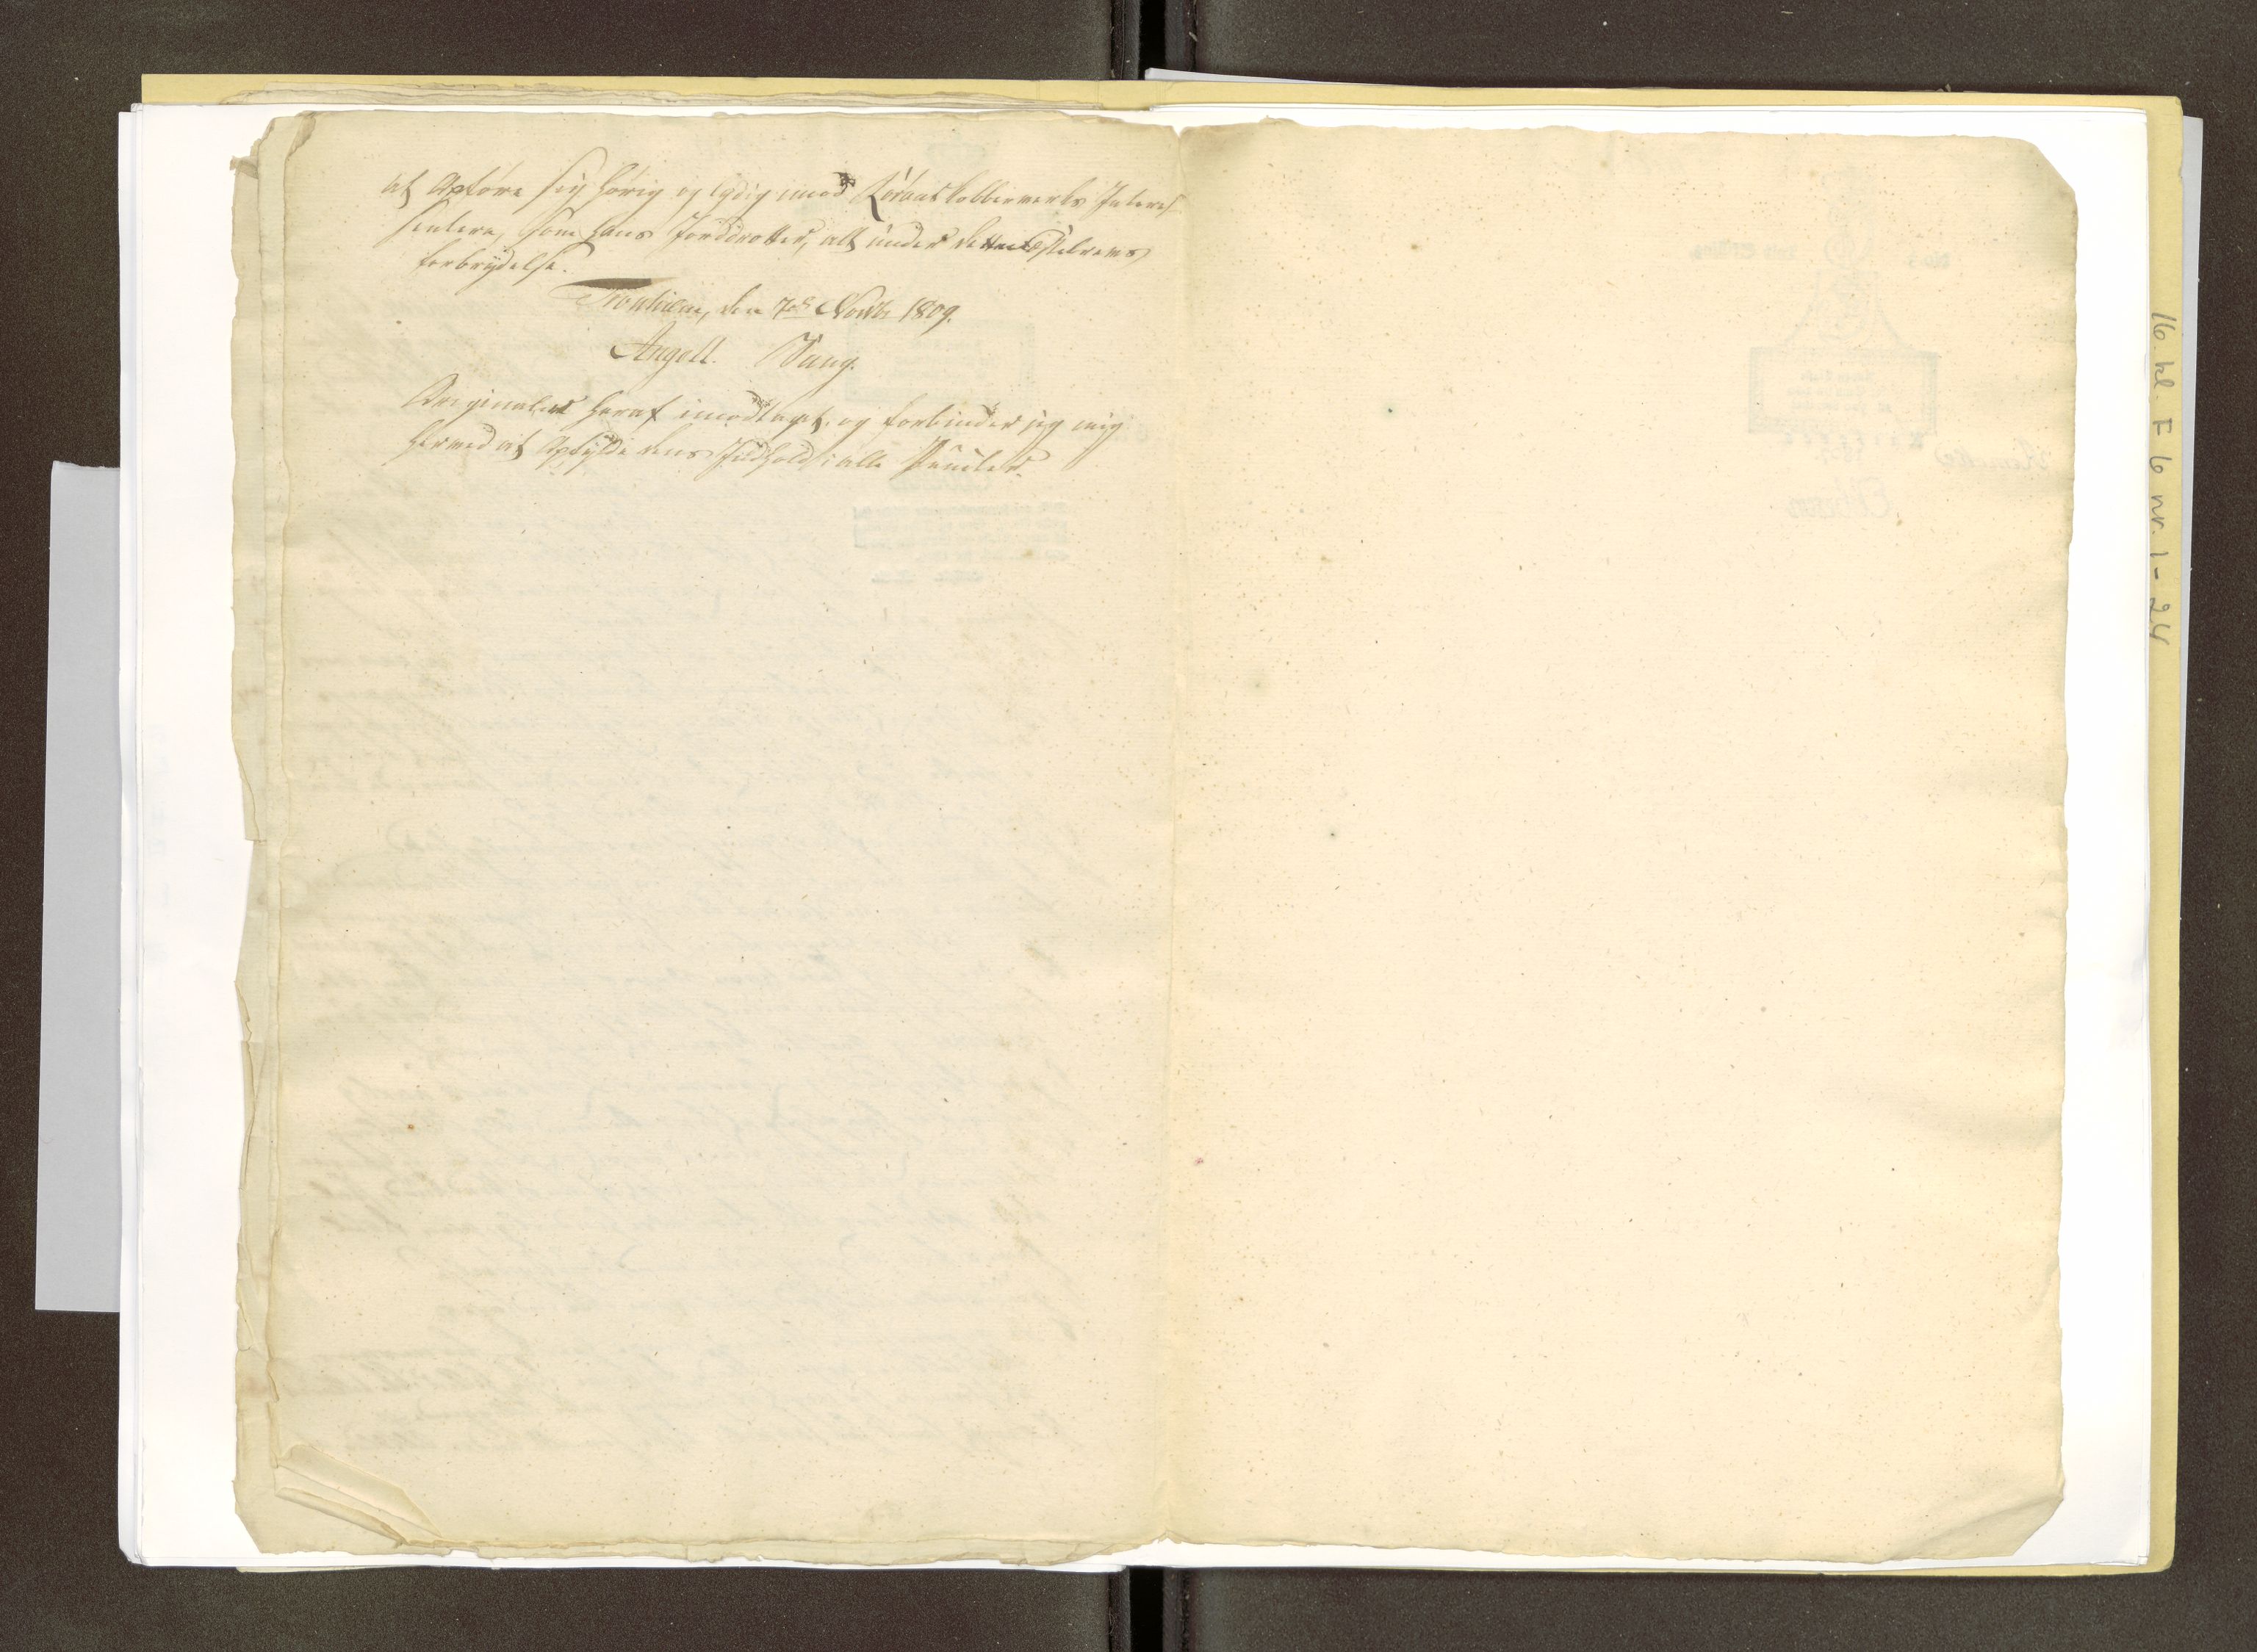 at opføre sig hørig og lydig imod Røraas Kobberverks Interes-
sentere, som hans Jorddrotter, alt under dette Bøxelbrevs
forbrydelse.
Tronhiem, den 7de Novbr 1809.
Angell. Bang.
Originalen heraf imodtaget, og forbinder jeg mig
hermed at opfylde dens Indhold i alle Puncter.
16. kl. F 6 nr. 1 - 24